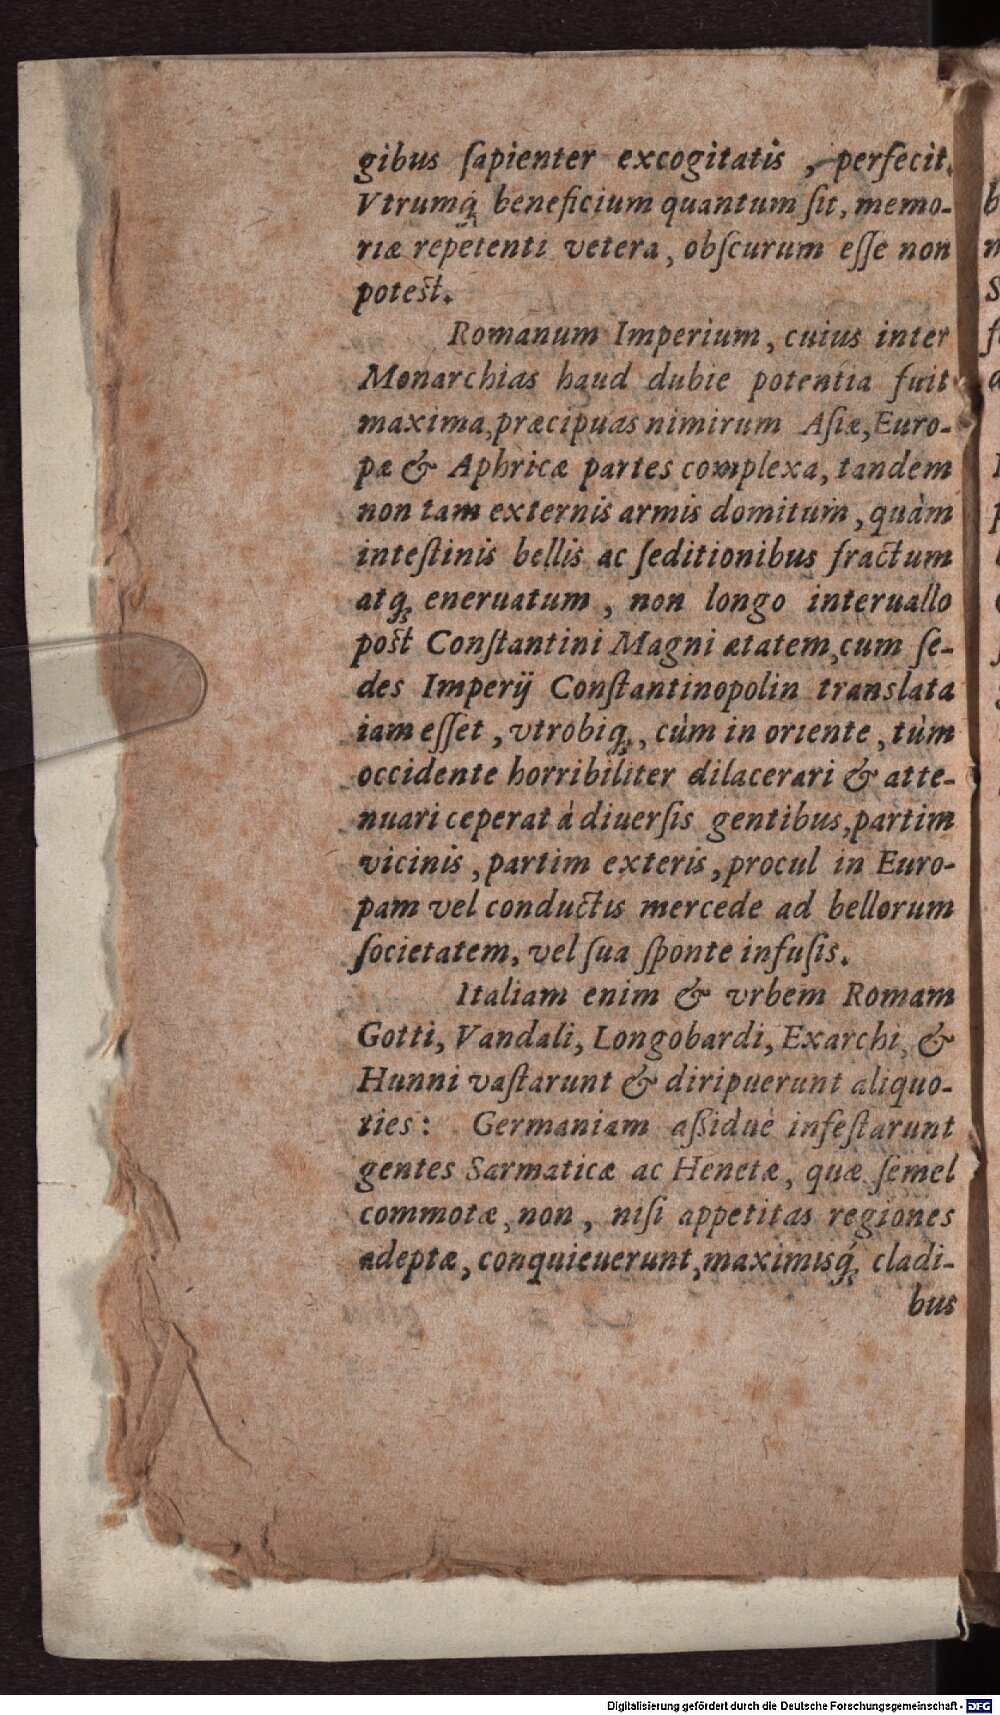 gibus ſapienter excogitatis , perfecit.
Vtrumq́ꝫ beneficium quantum ſit, memo-
riæ repetenti vetera, obſcurum eſſe non
poteſt.
Romanum Imperium, cuius inter
Monarchias haud dubie potentia fuit
maxima, præcipuas nimirum Aſiæ, Euro-
pæ & Aphricæ partes complexa, tandem
non tam externis armis domitum, quàm
inteſtinis bellis ac ſeditionibus fractum
atqꝫ eneruatum, non longo interuallo
poſt Conſtantini Magni ætatem, cum ſe-
des Imperij Conſtantinopolin translata
iam eſſet, vtrobiqꝫ, cùm in oriente, tùm
occidente horribiliter dilacerari & atte-
nuari ceperat à diuerſis gentibus, partim
vicinis, partim exteris, procul in Euro-
pam vel conductis mercede ad bellorum
ſocietatem, vel ſua ſponte infuſis.
Italiam enim & vrbem Romam
Gotti, Vandali, Longobardi, Exarchi, &
Hunni vaſtarunt & diripuerunt aliquo-
ties: Germaniam aſsiduè infeſtarunt
gentes Sarmaticæ ac Henetæ, quæ ſemel
commotæ, non, niſi appetitas regiones
adeptæ, conquieuerunt, maximisq́ꝫ cladi-
bus
Digitalisierung gefördert durch die Deutsche Forschungsgemeinschaft - DFG